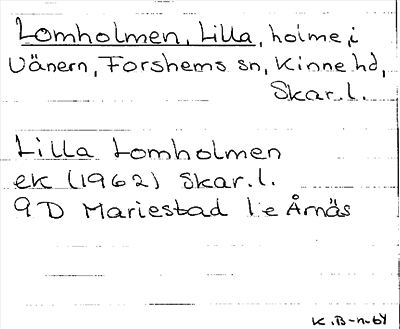 Lomholmen, Lilla, holme i
Vänern, Forshems sn, Kinne hd,
Skar.l.
Lilla Lomholmen
ek (1962) Skar.l.
9D Mariestad 1e Årnäs
K.B-n-64